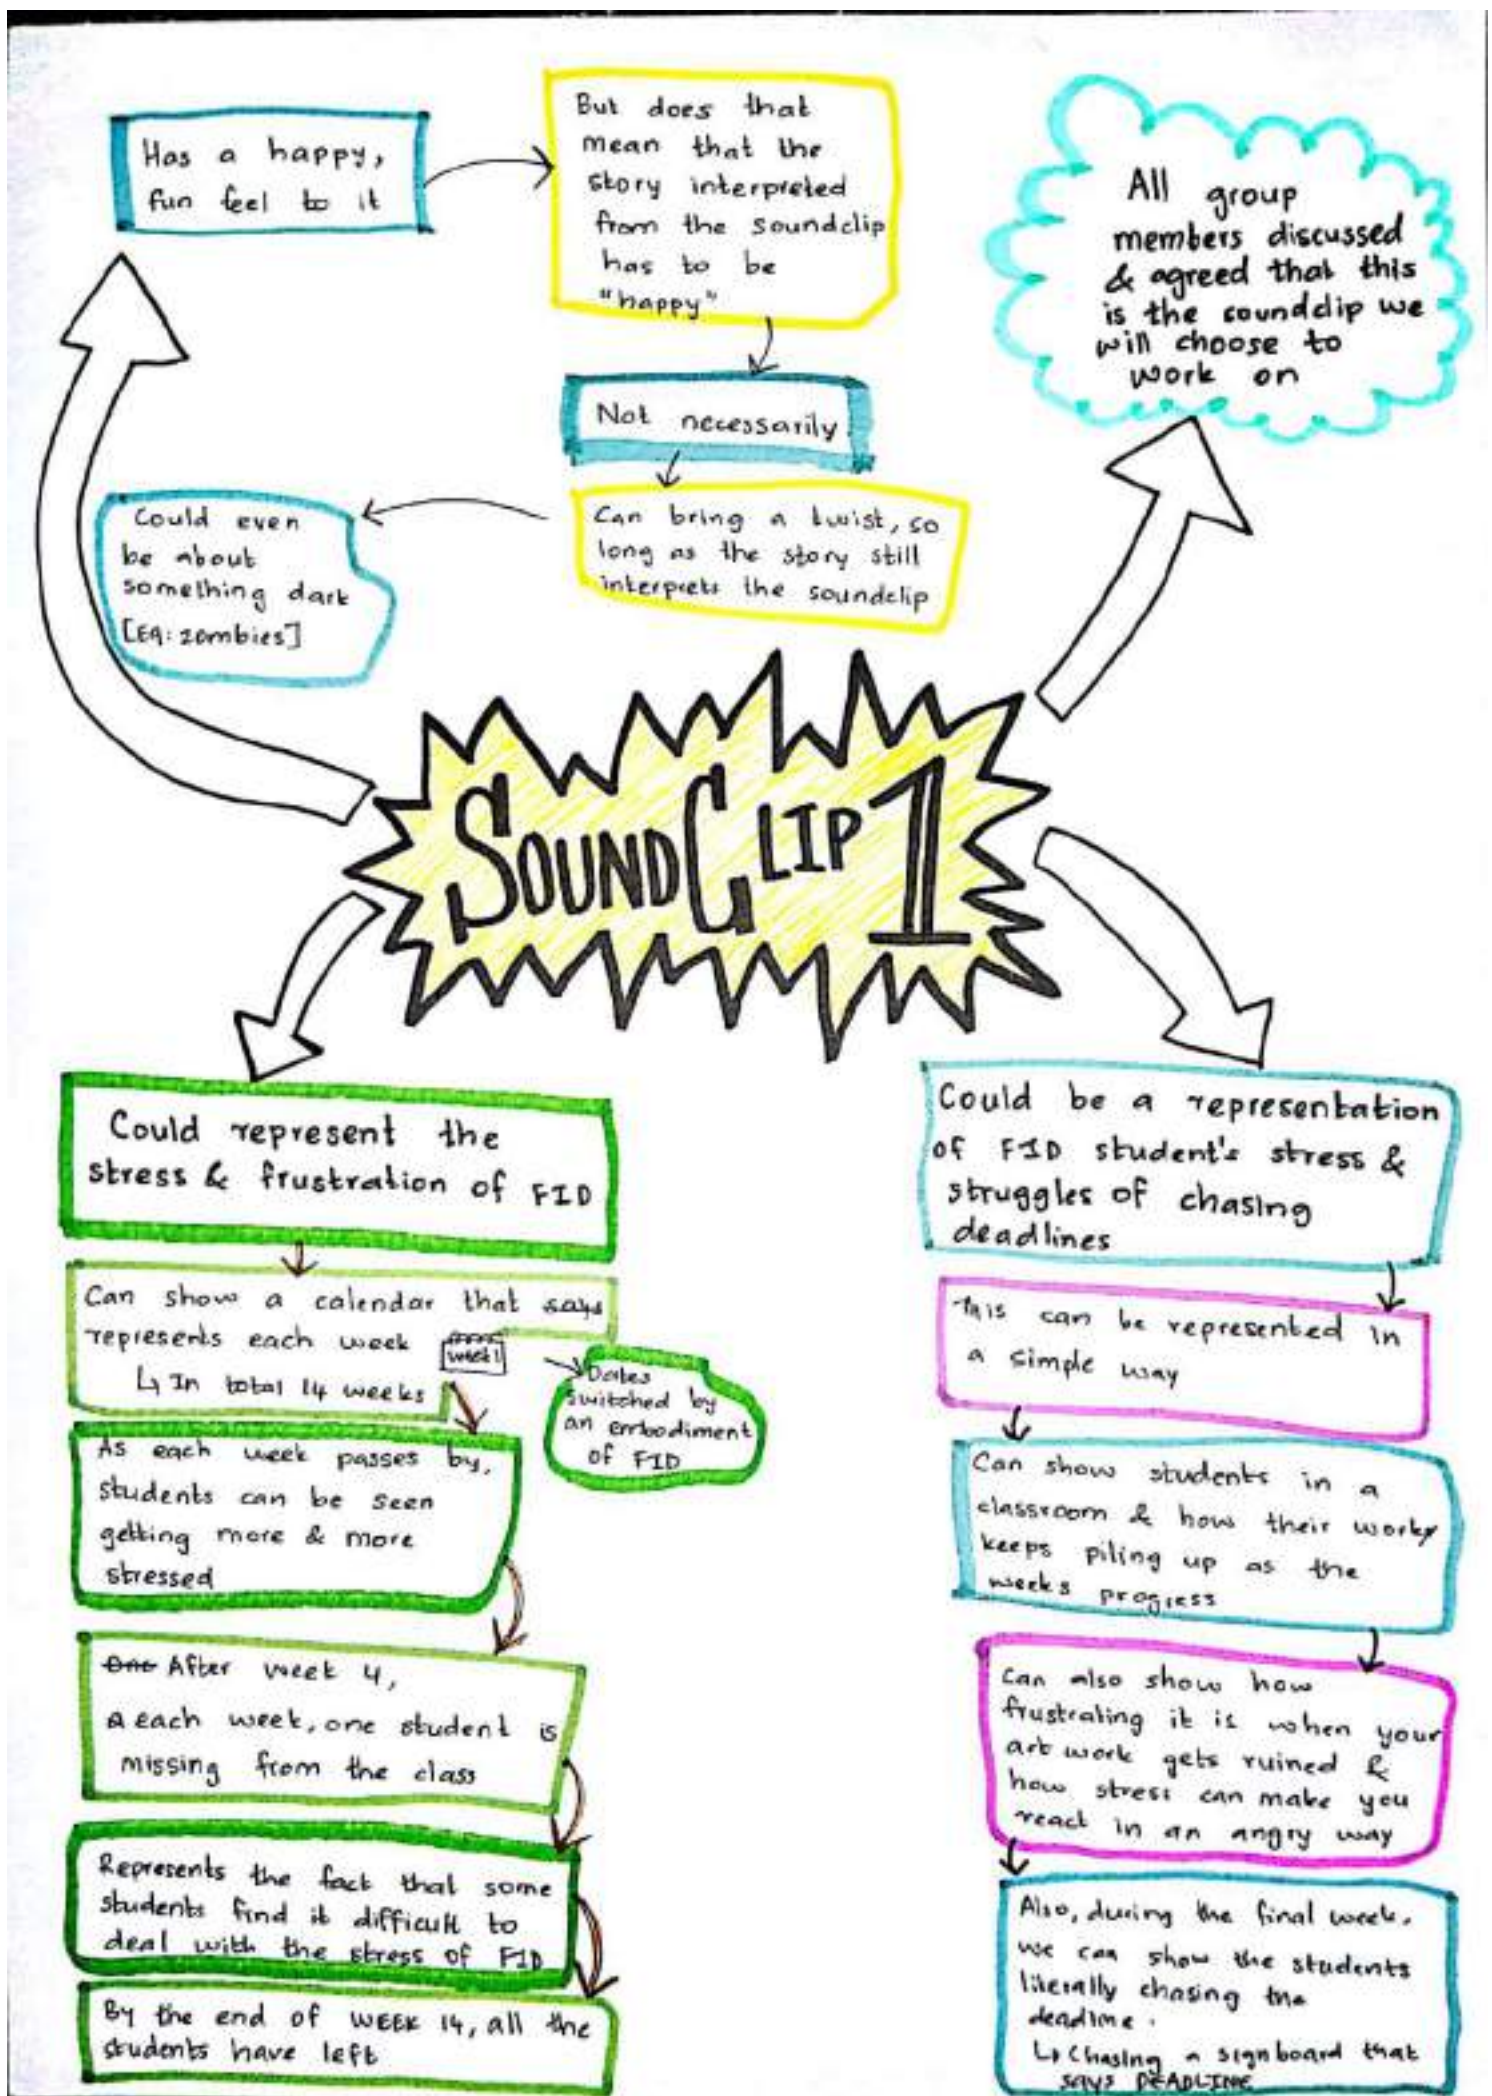 Has a happy,
fun feel to it
But does that
mean that the
story interpreted
from the soundclip
has to be
"happy"
Not necessarily
Can bring a twist, so
long as the story still
interprets the soundclip
Could even
be about
something dark
[EG: zombies]
All group
members discussed
& agreed that this
is the soundclip we
will choose to
work on
SOUNDCLIP 1
Could represent the
stress & frustration of FID
Can show a calendar that says
represents each week
week 1
↳ In total 14 weeks
Dates
switched by
an embodiment
of FID
As each week passes by,
students can be seen
getting more & more
stressed
One After week 4,
a each week, one student is
missing from the class
Represents the fact that some
students find it difficult to
deal with the stress of FID
By the end of WEEK 14, all the
students have left
Could be a representation
of FID student's stress &
struggles of chasing
deadlines
This can be represented in
a simple way
Can show students in a
classroom & how their work
keeps piling up as the
weeks progress
Can also show how
frustrating it is when your
art work gets ruined &
how stress can make you
react in an angry way
Also, during the final week,
we can show the students
literally chasing the
deadline.
↳ Chasing a signboard that
says DEADLINE